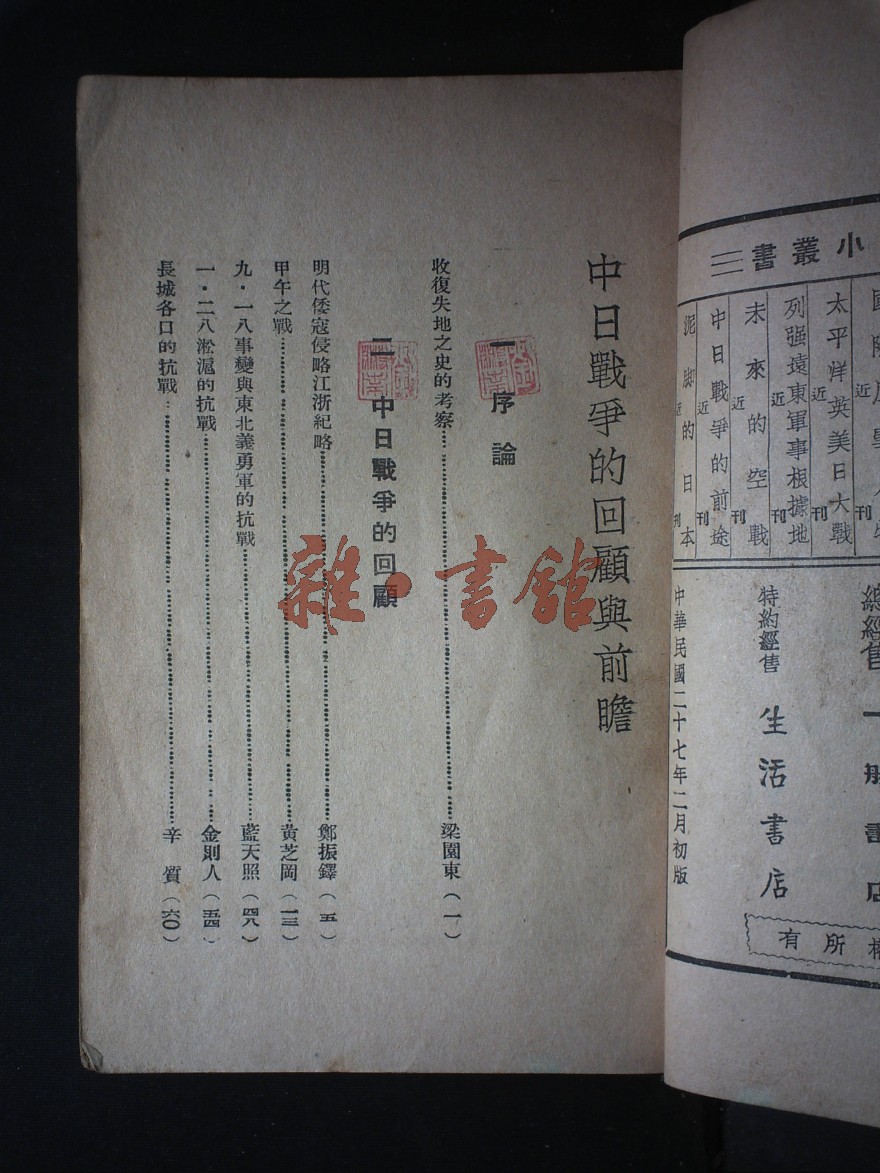 小叢書三
太平洋英美日大戰 近刊
列强遠東軍事根據地 近刊
未來的空戰 近刊
中日戰爭的前途 近刊
泥脚的日本 近刊
總經售 一般書店
特約經售 生活書店
所有
中華民國二十七年二月初版
中日戰爭的回顧與前瞻
一 序論
收復失地之史的考察……梁園東(一)
二 中日戰爭的回顧
明代倭寇侵略江浙紀略……鄭振鐸(五)
甲午之戰……黃芝岡(一三)
九·一八事變與東北義勇軍的抗戰……藍天照(四八)
一·二八淞滬的抗戰……金則人(五四)
長城各口的抗戰……辛質(六〇)
雜·書館